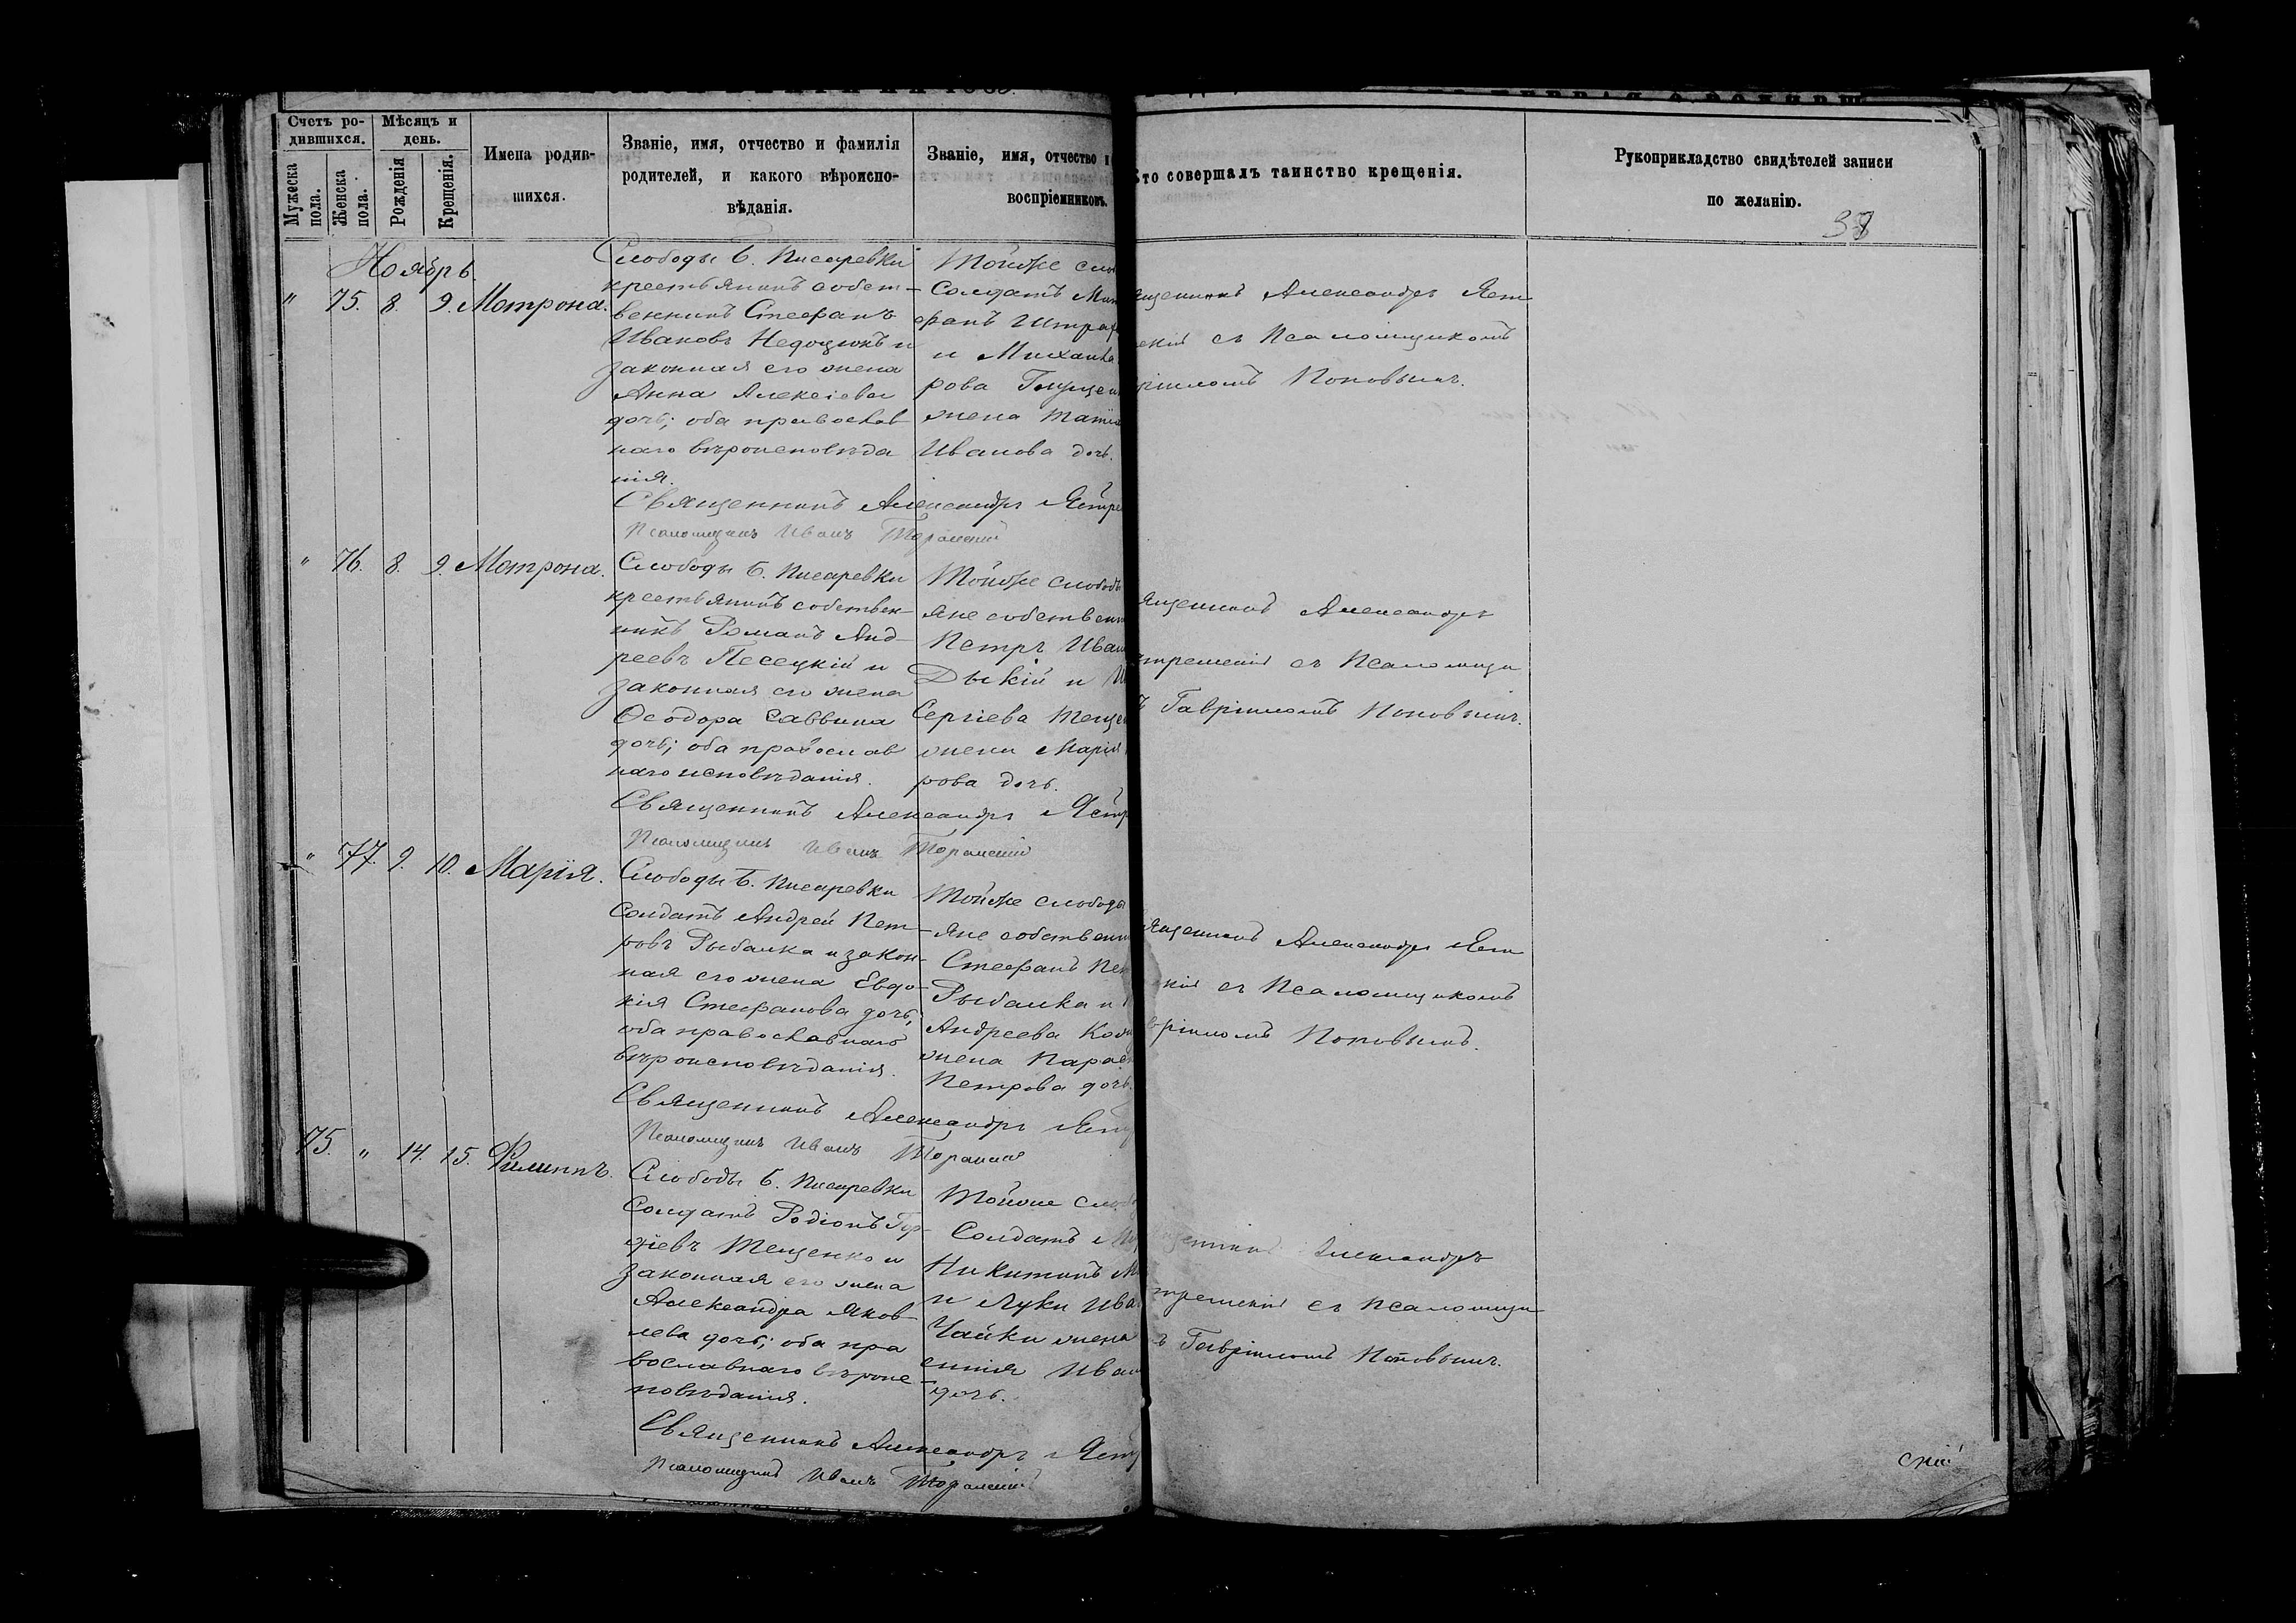 Счетъ ро-
дившихся.
Мѣсяцъ и
день.
Мужеска
пола.
Женска
пола.
Рожденія
Крещенія.
Имена родив-
шихся.
Званіе, имя, отчество и фамилія
родителей, и какого вѣроиспо-
вѣданія.
Званіе, имя, отчество и
воспріемниковъ.
Кто совершалъ таинство крещенія.
Рукоприкладство свидѣтелей записи
по желанію.
Ноябрь
" 75. 8. 9. Матрона.
Слободы Б. Писаревки
крестьянинъ собст-
венникъ Стефанъ
Ивановъ и
законная его жена
Анна Алексіева
дочь; оба православ
наго вѣроисповѣда
нія.
Тойже сло
Солдатъ Мит
фанъ
и Михаила
рова
жена Татіа
Иванова дочь.
ященникъ Александръ Яст
скій съ Псаломщикомъ
ріиломъ Поповымъ.
Священникъ Александръ Ястре
Псаломщикъ Иванъ
" 76. 8. 9. Матрона.
Слободы Б. Писаревки
крестьянинъ собствен-
никъ Романъ Анд-
реевъ Песецкій и
законная его жена
Ѳеодора Саввина
дочь; оба православ
наго исповѣданія.
Тойже слободы
яне собственн
Петръ Иван
Дыкій и
Сергіева Теще
жена Марія
рова дочь.
ященникъ Александръ
тремскій съ Псаломщи
ъ Гавріиломъ Поповымъ.
Священникъ Александръ Ястр
Псаломщикъ Иванъ
" 77. 9. 10. Марія.
Слободы Б. Писаревки
Солдатъ Андрей Пет-
ровъ Рыбалка и закон-
ная его жена Евдо-
кія Стефанова дочь,
оба православнаго
вѣроисповѣданія.
Тойже слободы
яне собственн
Стефанъ Пет
Рыбалка и
Андреева
жена Парас
Петрова дочь.
ященникъ Александръ Яст
кій съ Псаломщикомъ
вріиломъ Поповымъ.
Священникъ Александръ Яст
Псаломщикъ Иванъ
75. " 14. 15. Филиппъ.
Слободы Б. Писаревки
Солдатъ Родіонъ
Тещенко и
законная его жена
Александра Яков-
лева дочь; оба пра
вославнаго вѣроис-
повѣданія.
Тойже слоб
Солдатъ
Никитинъ
и Луки Ива
Чайки жена
Иван
дочь.
Александръ
съ Псаломщи
ъ Гавріиломъ Поповымъ.
Священникъ Александръ Яст
Псаломщикъ Иванъ
скій